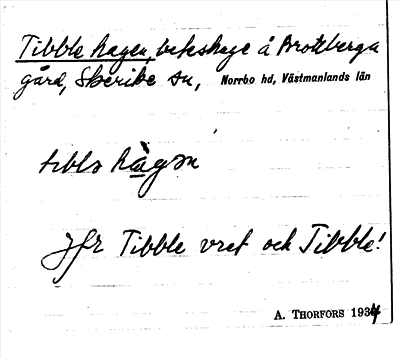 Tibble hagen, beteshage å Brottberga
gård, Skerike sn, Norrbo hd, Västmanlands län
tɩblə hàgən
Jfr Tibble vret och Tibble!
A. THORFORS 1934